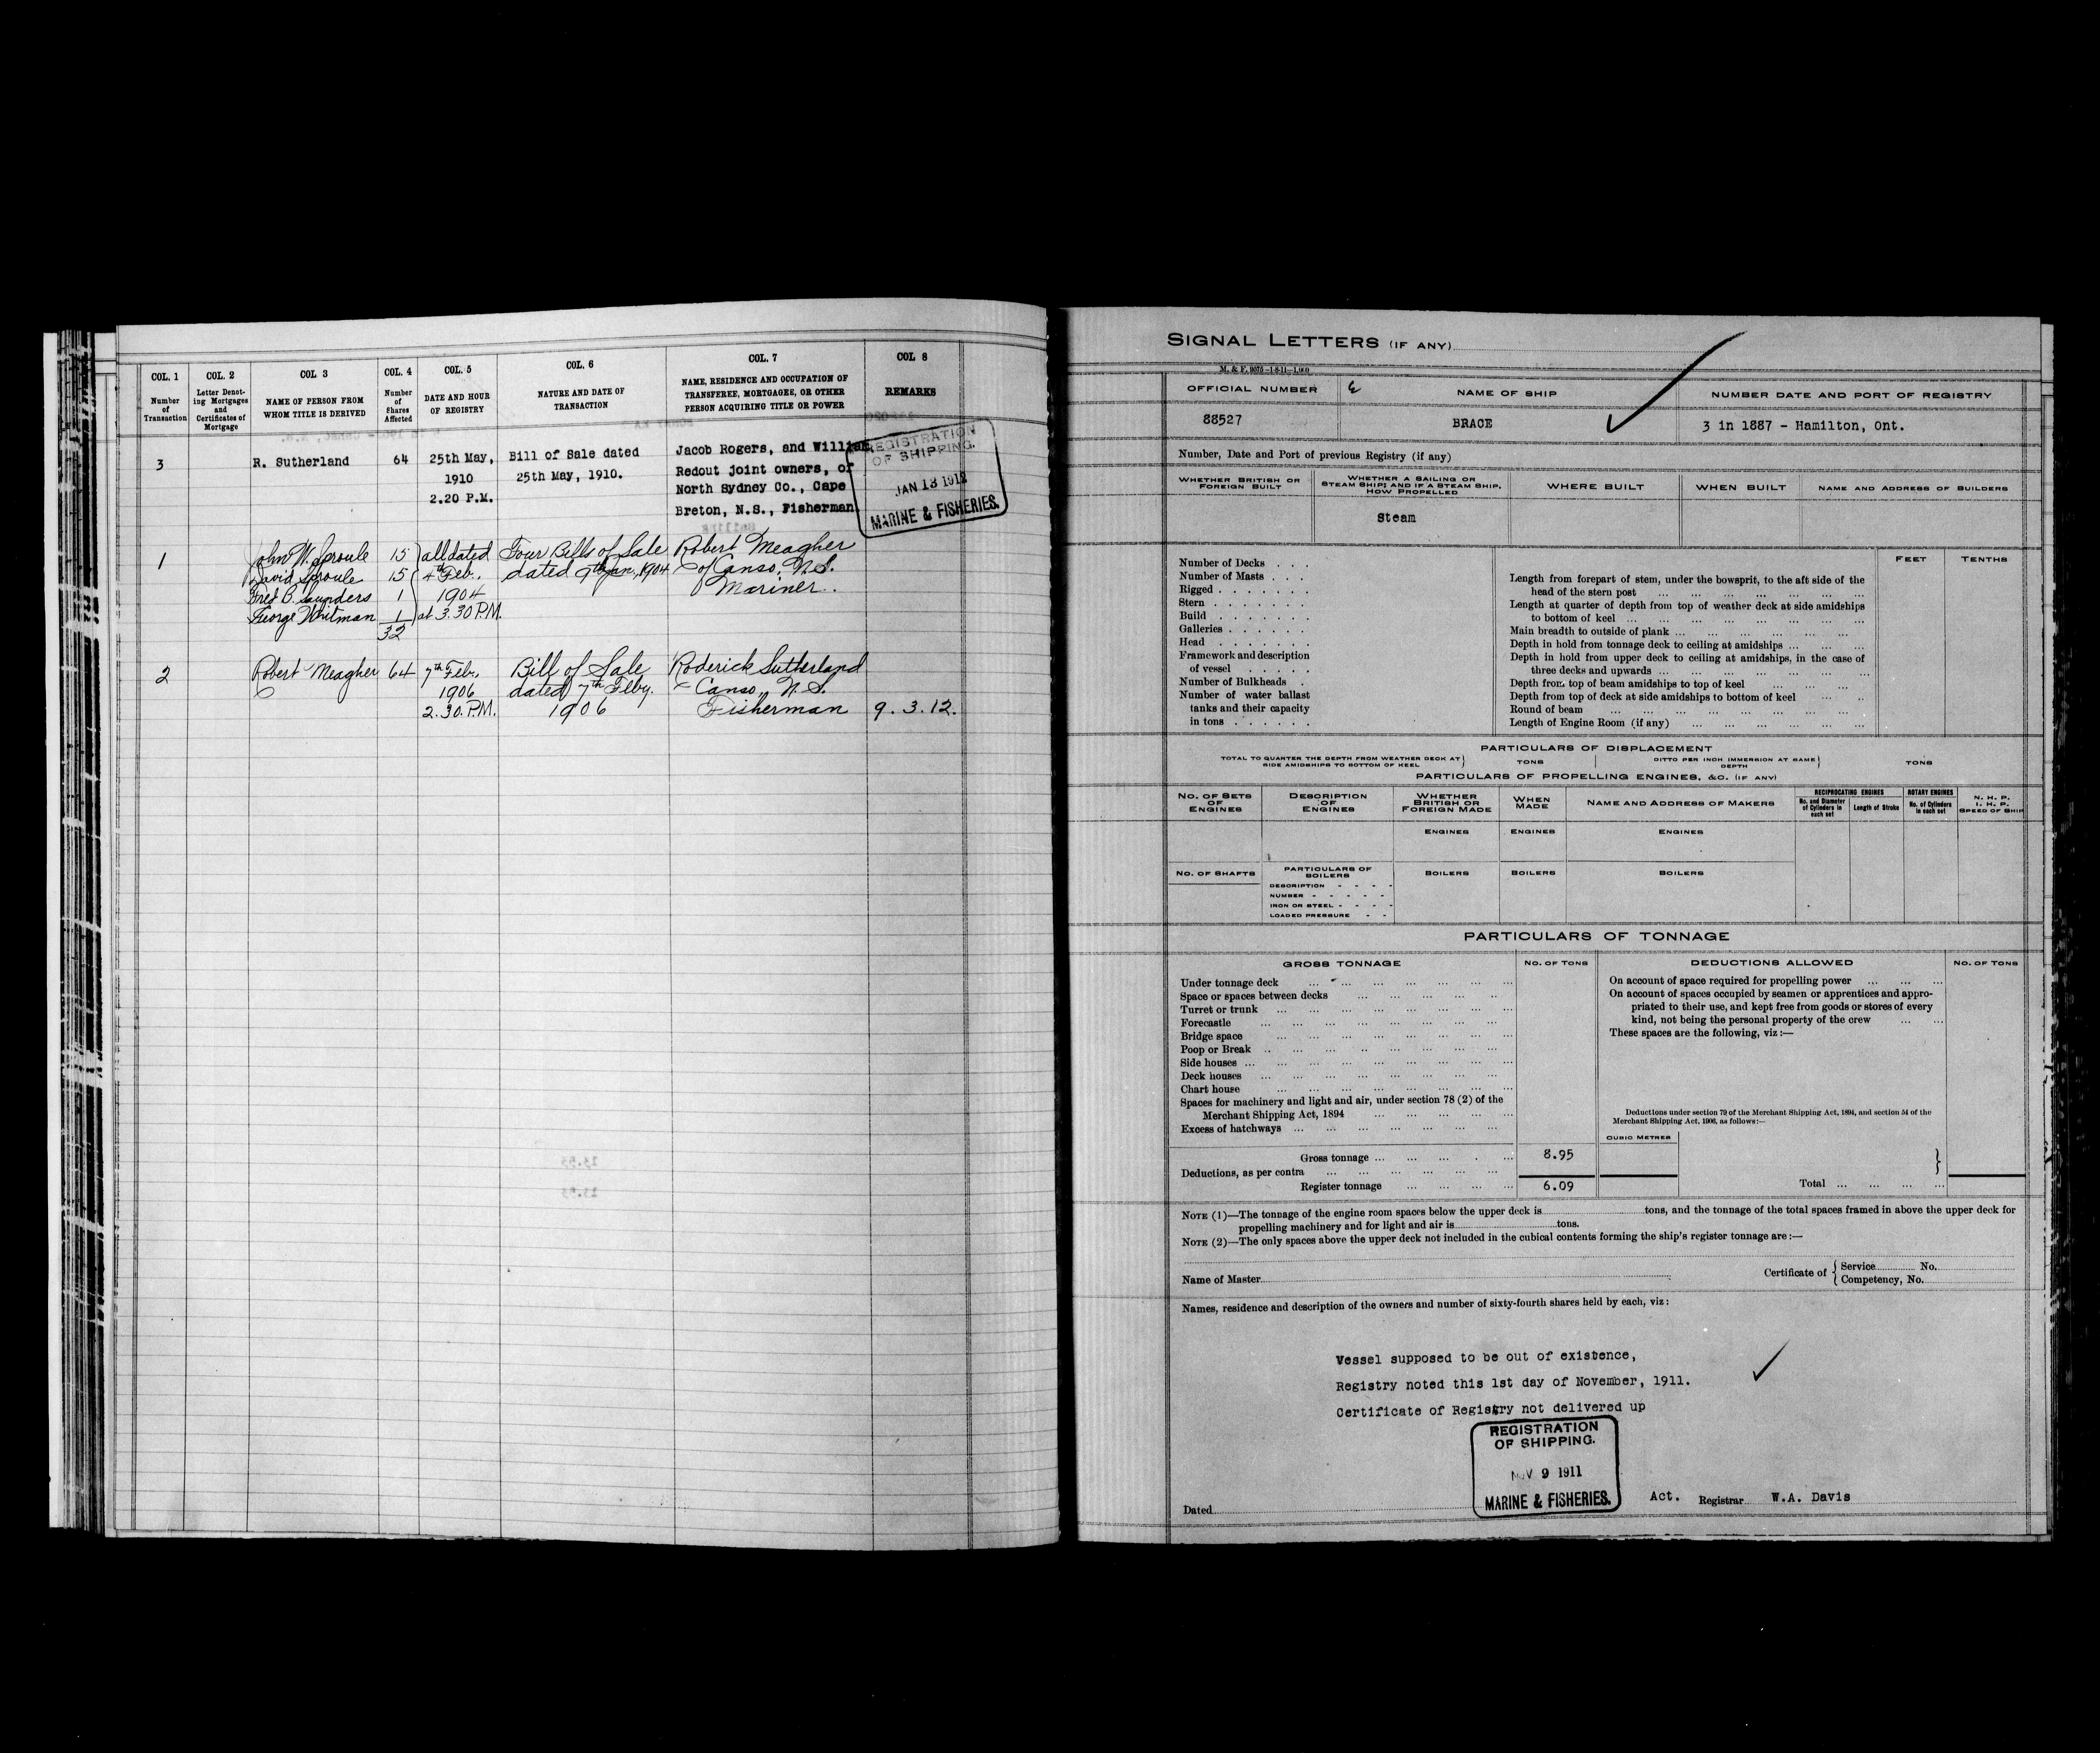 COL. 1
Number
of
Transaction
COL. 2
Letter Denot-
ing Mortgages
and
Certificates of
Mortgage
COL 3
NAME OF PERSON FROM
WHOM TITLE IS DERIVED
COL. 4
Number
of
Shares
Affected
COL. 5
DATE AND HOUR
OF REGISTRY
COL. 6
NATURE AND DATE OF
TRANSACTION
COL. 7
NAME, RESIDENCE AND OCCUPATION OF
TRANSFEREE, MORTGAGEE, OR OTHER
PERSON ACQUIRING TITLE OR POWER
COL 8
REMARKS
3 R. Sutherland 64 25th May, Bill of Sale dated Jacob Rogers, and William
1910 25th May, 1910. Redout joint owners, of
2.20 P.M. North Sydney Co., Cape
Breton, N.S., Fisherman
REGISTRATION
OF SHIPPING.
JAN 13 1912
MARINE & FISHERIES.
1 John W. Sproule 15 all dated Four Bills of Sale Robert Meagher
David Sproule 15 4th Feb., dated 9th Jan., 1904 of Canso, N.S.
Fred B. Saunders 1 1904 Mariner.
George Whitman 1 at 3.30 P.M.
32
2 Robert Meagher 64 7th Feb., Bill of Sale Roderick Sutherland
1906 dated 7th Feby. Canso, N.S.
2.30.P.M. 1906 Fisherman 9.3.12.
SIGNAL LETTERS (IF ANY)
M. & F. 9075-1-8-11-1,000
OFFICIAL NUMBER
88527
NAME OF SHIP
BRACE
NUMBER DATE AND PORT OF REGISTRY
3 in 1887 - Hamilton, Ont.
Number, Date and Port of previous Registry (if any)
WHETHER BRITISH OR
FOREIGN BUILT
WHETHER A SAILING OR
STEAM SHIP; AND IF A STEAM SHIP,
HOW PROPELLED
Steam
WHERE BUILT
WHEN BUILT
NAME AND ADDRESS OF BUILDERS
Number of Decks . . .
Number of Masts . . .
Rigged . . . . . . .
Stern . . . . . . .
Build . . . . . . .
Galleries . . . . . .
Head . . . . . . .
Framework and description
of vessel . . . . .
Number of Bulkheads .
Number of water ballast
tanks and their capacity
in tons . . . . . .
FEET TENTHS
Length from forepart of stem, under the bowsprit, to the aft side of the
head of the stern post
Length at quarter of depth from top of weather deck at side amidships
to bottom of keel
Main breadth to outside of plank
Depth in hold from tonnage deck to ceiling at amidships
Depth in hold from upper deck to ceiling at amidships, in the case of
three decks and upwards
Depth from top of beam amidships to top of keel
Depth from top of deck at side amidships to bottom of keel
Round of beam
Length of Engine Room (if any)
PARTICULARS OF DISPLACEMENT
TOTAL TO QUARTER THE DEPTH FROM WEATHER DECK AT
SIDE AMIDSHIPS TO BOTTOM OF KEEL
TONS
DITTO PER INCH IMMERSION AT SAME
DEPTH
TONS
PARTICULARS OF PROPELLING ENGINES, &C. (IF ANY)
NO. OF SETS
OF
ENGINES
DESCRIPTION
OF
ENGINES
WHETHER
BRITISH OR
FOREIGN MADE
WHEN
MADE
NAME AND ADDRESS OF MAKERS
RECIPROCATING ENGINES
No. and Diameter
of Cylinders in
each set
Length of Stroke
ROTARY ENGINES
No. of Cylinders
in each set
N. H. P.
I. H. P.
SPEED OF SHIP
ENGINES ENGINES ENGINES
NO. OF SHAFTS
PARTICULARS OF
BOILERS
DESCRIPTION - - - -
NUMBER - - - - -
IRON OR STEEL - - - -
LOADED PRESSURE - -
BOILERS BOILERS BOILERS
PARTICULARS OF TONNAGE
GROSS TONNAGE
NO. OF TONS
Under tonnage deck
Space or spaces between decks
Turret or trunk
Forecastle
Bridge space
Poop or Break
Side houses
Deck houses
Chart house
Spaces for machinery and light and air, under section 78 (2) of the
Merchant Shipping Act, 1894
Excess of hatchways
Gross tonnage 8.95
Deductions, as per contra
Register tonnage 6.09
DEDUCTIONS ALLOWED
NO. OF TONS
On account of space required for propelling power
On account of spaces occupied by seamen or apprentices and appro-
priated to their use, and kept free from goods or stores of every
kind, not being the personal property of the crew
These spaces are the following, viz:—
Deductions under section 79 of the Merchant Shipping Act, 1894, and section 54 of the
Merchant Shipping Act, 1906, as follows:—
CUBIC METRES
Total
NOTE (1)—The tonnage of the engine room spaces below the upper deck is tons, and the tonnage of the total spaces framed in above the upper deck for
propelling machinery and for light and air is tons.
NOTE (2)—The only spaces above the upper deck not included in the cubical contents forming the ship's register tonnage are:—
Name of Master
Certificate of { Service No.
Competency, No.
Names, residence and description of the owners and number of sixty-fourth shares held by each, viz:
Vessel supposed to be out of existence,
Registry noted this 1st day of November, 1911.
Certificate of Registry not delivered up
REGISTRATION
OF SHIPPING.
NOV 9 1911
MARINE & FISHERIES.
Dated
Act. Registrar W.A. Davis